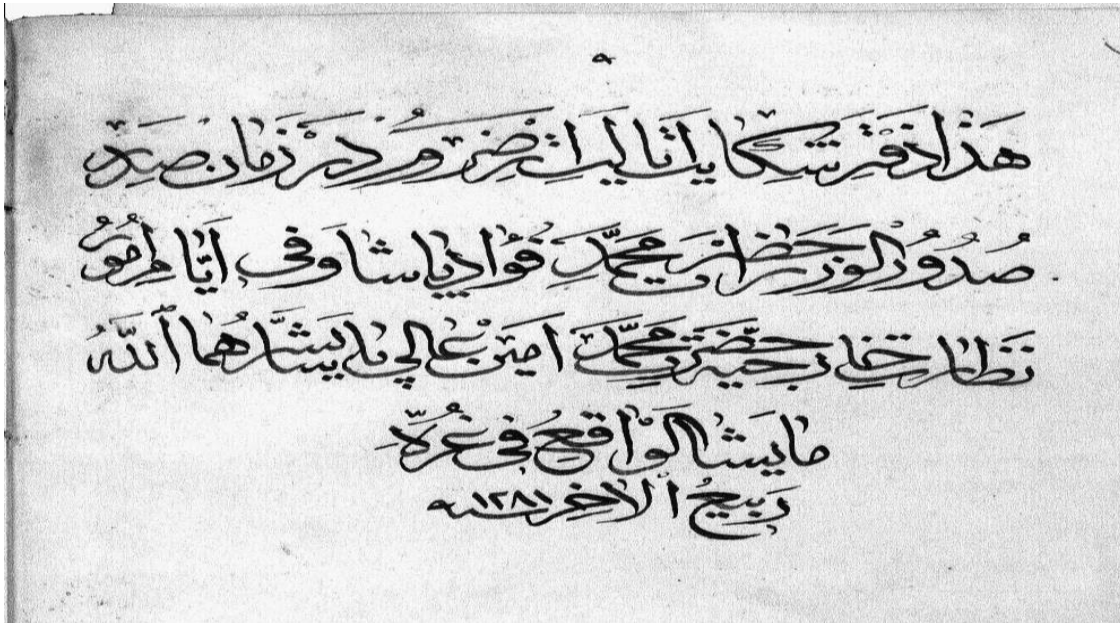 هَذَا دفتر شكايات ايالت ارضروم در زمان صدر
صدور الوزرا حضرت محمد فؤاد پاشا وفى ايام امور
نظارت خارجيه حضرت محمد امين عالي پاشا يسرهما الله
ما يشا الواقع في غره
ربيع الاخر سنه ١٢٨١